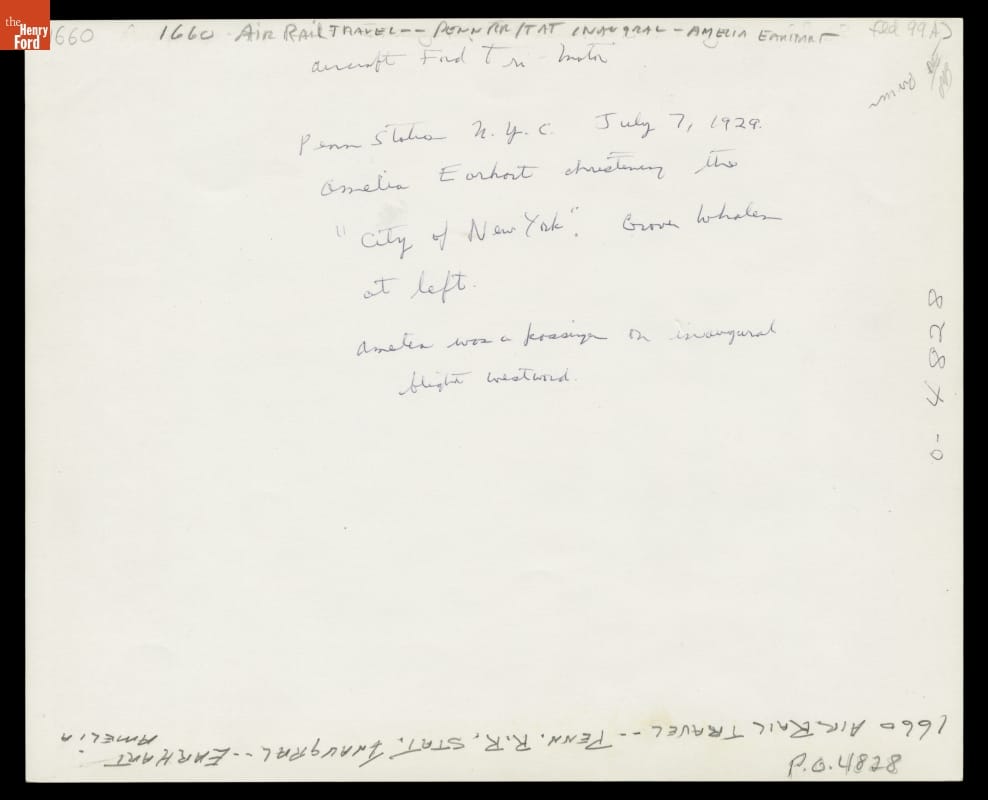 the
Henry
Ford
1660 1660 AIR RAIL TRAVEL -- PENN RR/TAT INAUGRAL - AMELIA EARHART
aircraft Ford Tri-motor
Penn Station N.Y.C. July 7, 1929.
Amelia Earhart christening the
"City of New York". Grover Whalen
at left.
Amelia was a passenger on inaugural
flight westward.
0-4828
1660 AIR RAIL TRAVEL -- PENN. R.R. STAT. INAUGRAL -- EARHART
AMELIA
P.O.4828